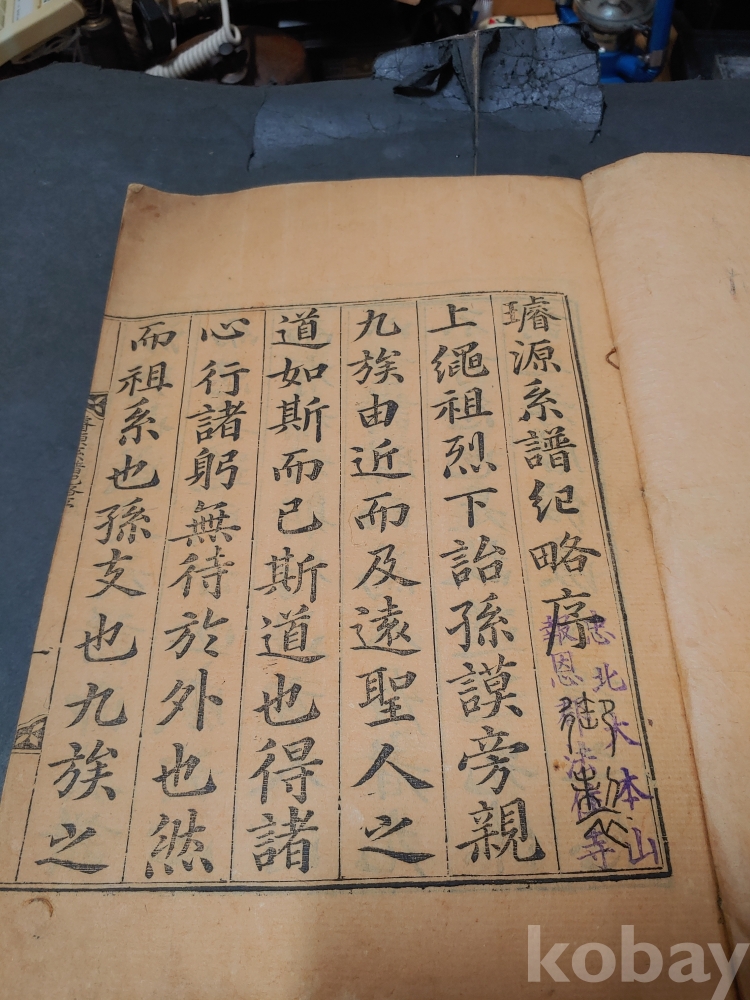 璿源系譜紀略序
御製
忠北大本山
報恩郡法住寺
上繩祖烈下詒孫謨旁親
九族由近而及遠聖人之
道如斯而已斯道也得諸
心行諸躬無待於外也然
而祖系也孫支也九族之
kobay